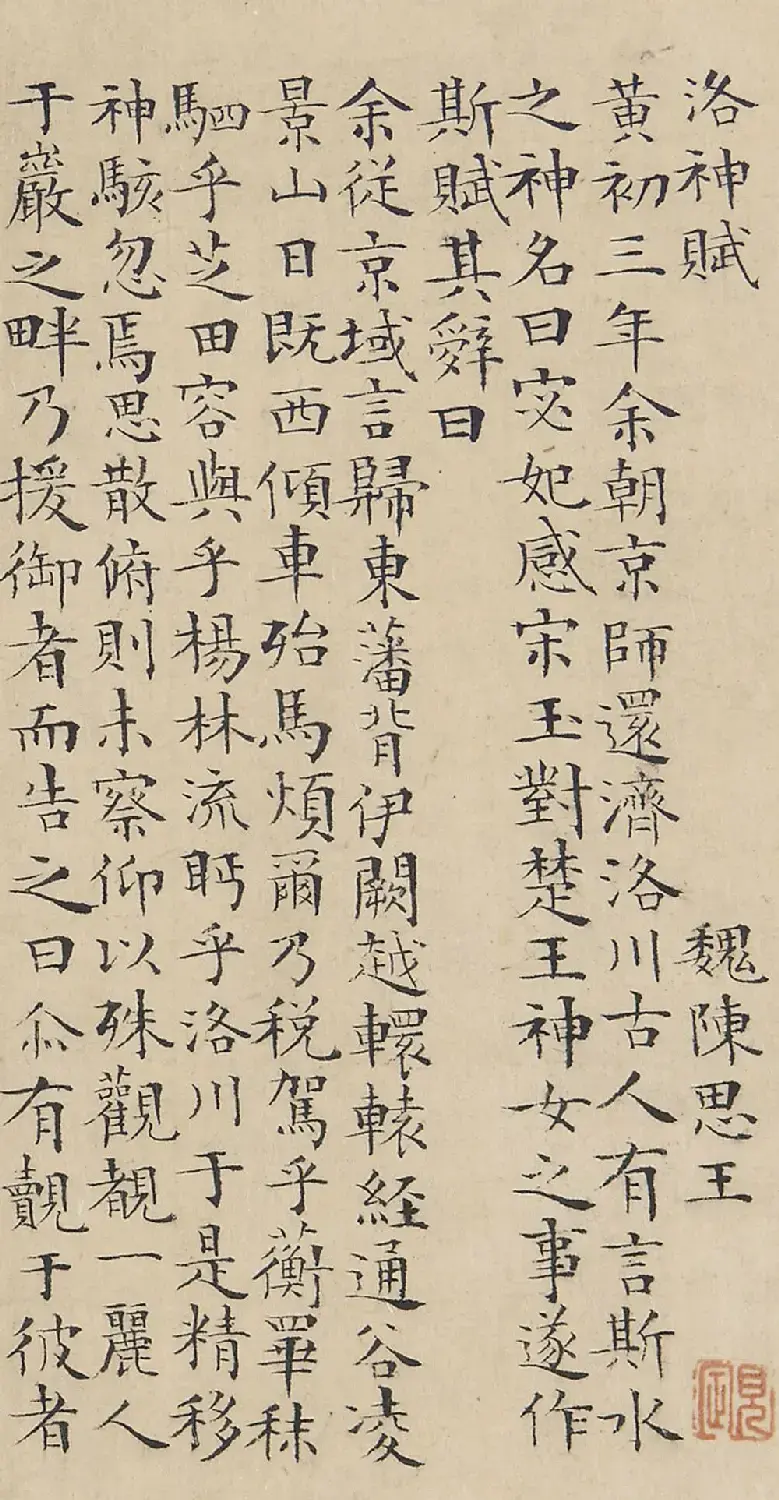 洛神賦 魏陳思王
黄初三年余朝京師還濟洛川古人有言斯水
之神名曰宓妃感宋玉對楚王神女之事遂作
斯賦其辭曰
余從京域言歸東藩背伊闕越轘轅経通谷凌
景山日既西傾車殆馬煩爾乃税駕乎蘅皋秣
駟乎芝田容與乎楊林流眄乎洛川于是精移
神駭忽焉思散俯則未察仰以殊觀覩一麗人
于巖之畔乃援御者而告之曰尒有覿于彼者